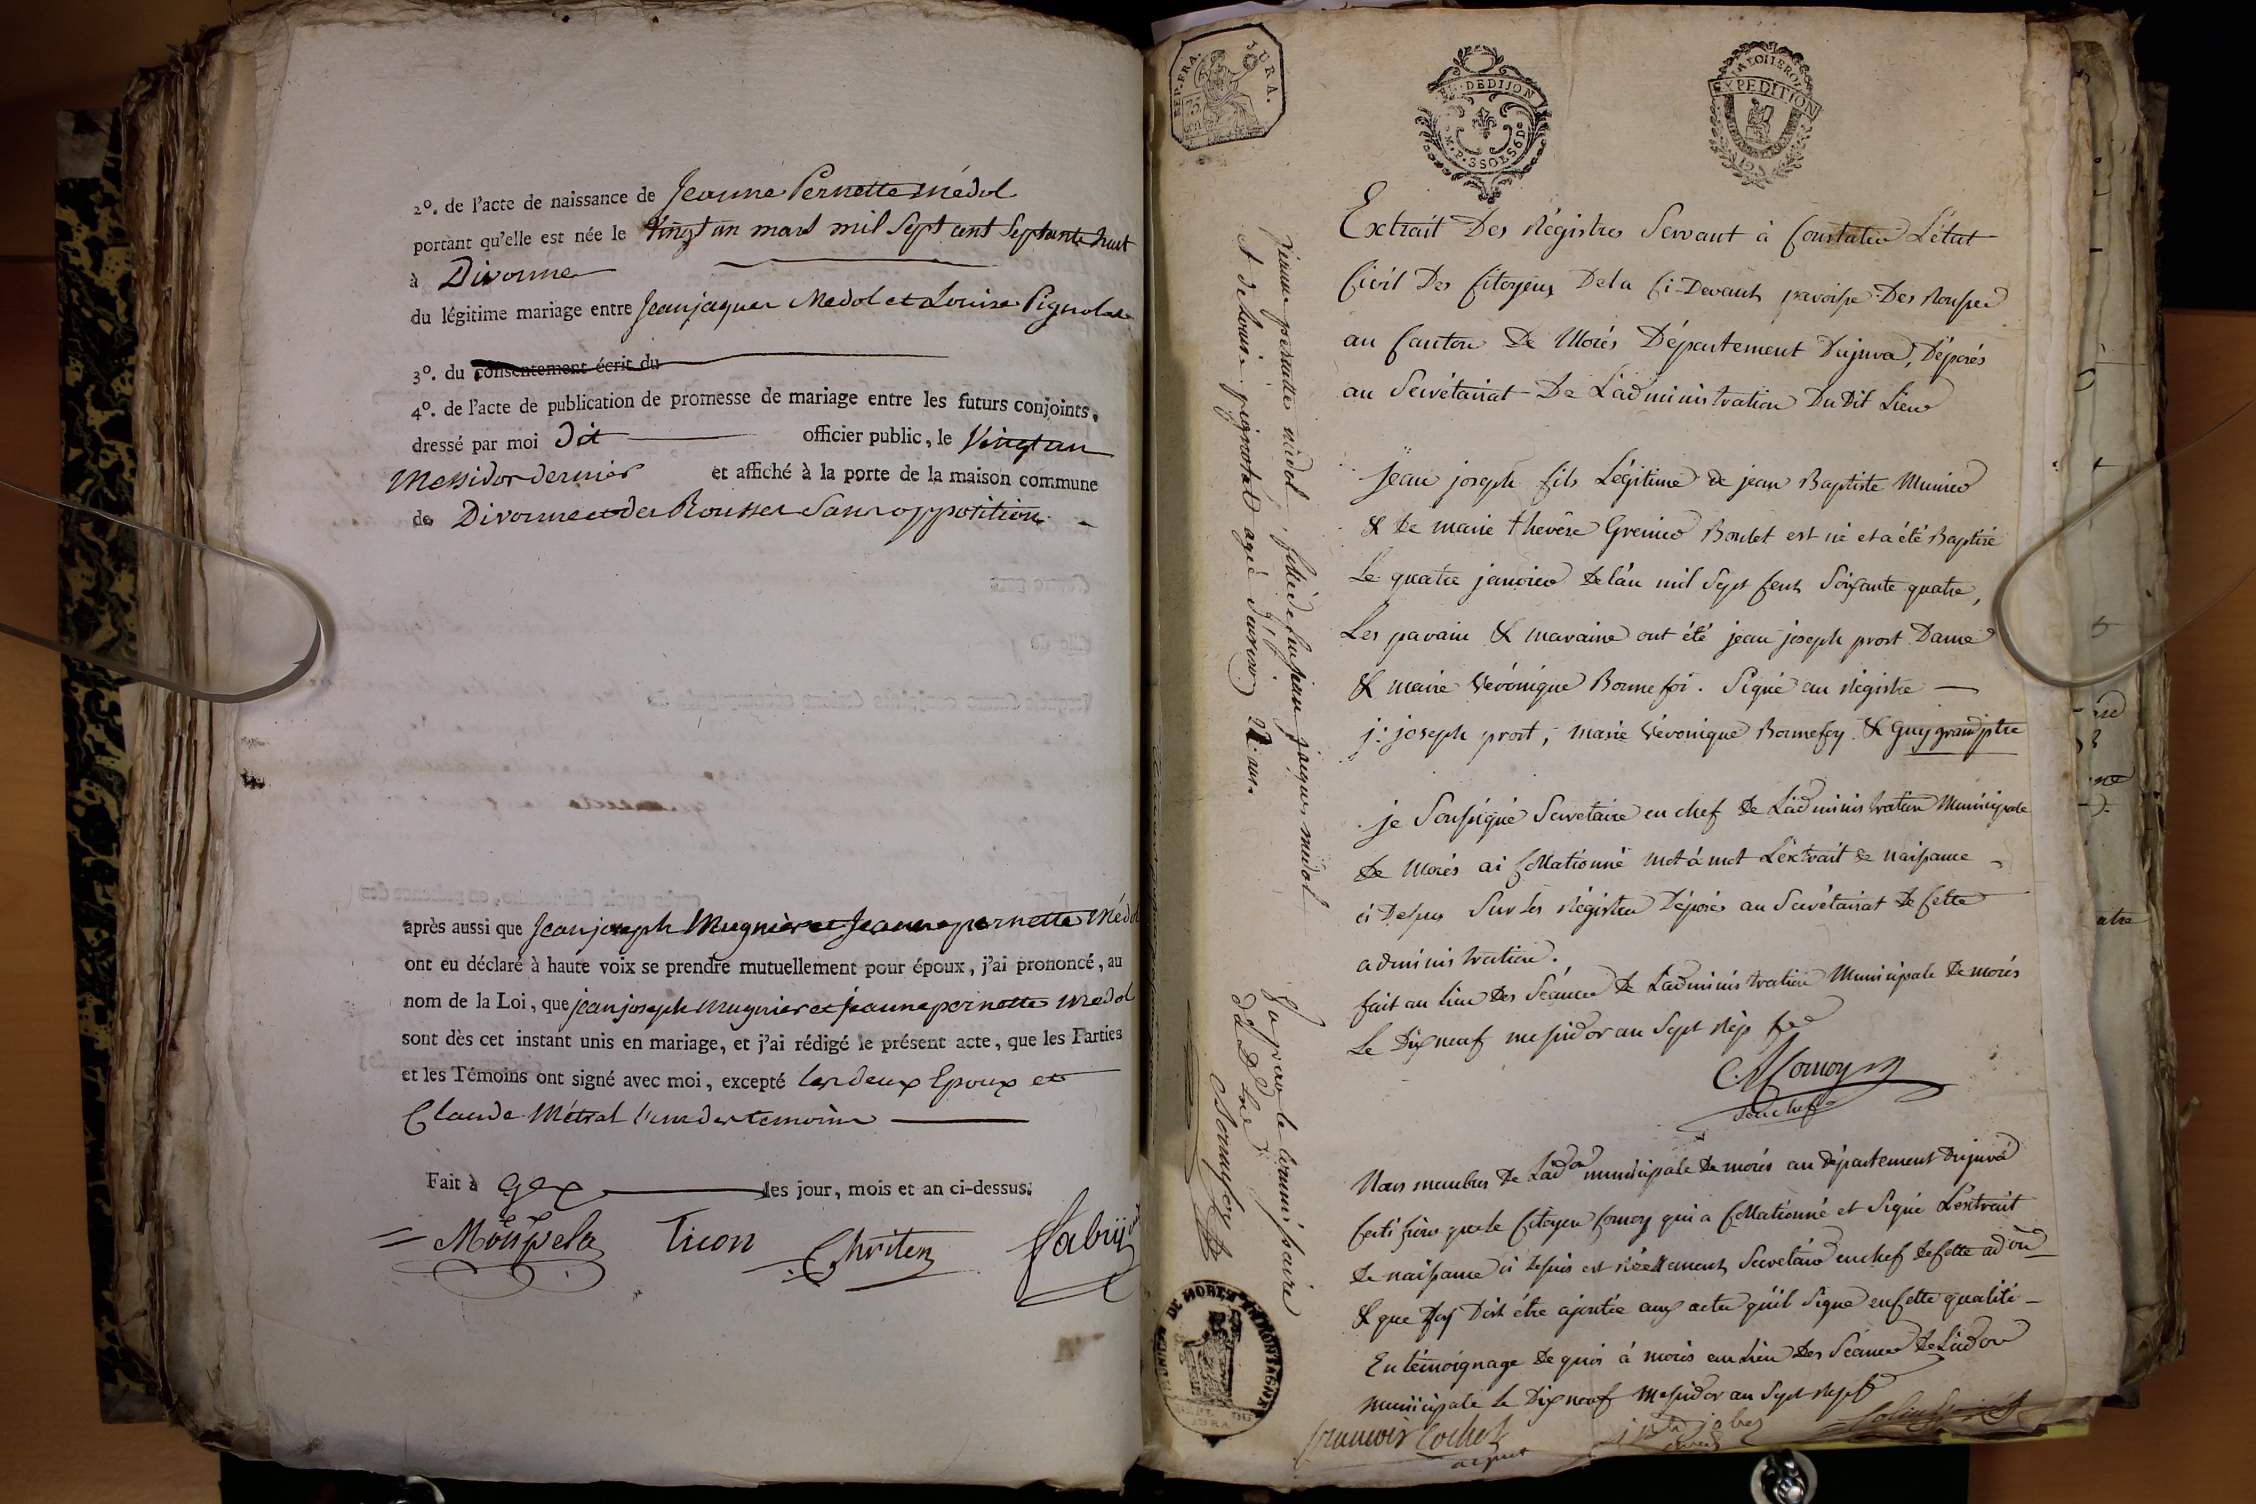 2º. de l'acte de naissance de Jeanne Pernette Médol
portant qu'elle est née le Vingt un mars mil Sept cent Septante huit
à Divonne
du légitime mariage entre Jeanjaques Medol et Louise Pignolat
3º. du consentement écrit du
4º. de l'acte de publication de promesse de mariage entre les futurs conjoints,
dressé par moi dit officier public, le Vingt un
Messidor dernier et affiché à la porte de la maison commune
de Divonne et des Rousses Sans opposition
après aussi que Jean joseph Mugnier et Jeanne pernette Médol
ont eu déclaré à haute voix se prendre mutuellement pour époux, j'ai prononcé, au
nom de la Loi, que jean joseph Mugnier et jeanne pernette Medol
sont dès cet instant unis en mariage, et j'ai rédigé le présent acte, que les Parties
et les Témoins ont signé avec moi, excepté les deux Epoux et
Claude Métral l'un des temoins
Fait à Gex les jour, mois et an ci-dessus.
Ticon Christen Fabry
REP. FRA. JURA.
75
cen
DEDIJON
M.P. 3 SOLS 6 D
LA LOI LE ROI
EXPEDITION
Extrait Des Régistres Servant à Constater L'état
Civil Des Citoyens De la Ci-Devant paroisse Des Rousses
au Canton De Morés Département Dujura, Déposés
au Secrétariat De L'administration Du Dit Lieu
jean joseph fils Légitime de jean Baptiste Munier
& De marie therêse Grenier Boulet est né et a été Baptisé
Le quatre janvier de l'an mil Sept Cent Soixante quatre,
Les parain & maraine ont été jean joseph prost Dame
& marie Véronique Bonnefoi. Signé au Régistre
j: joseph prost, marie Véronique Bonnefoy & Guy grand ptre
je Soussigné Secretaire en chef De L'administration Municipale
De Morés ai Collationné mot à mot L'extrait de naissance
ci Dessus Sur les Régistres Déposés au Secrétariat De Cette
administration.
fait au lieu Des Séances De L'administration Municipale De morés
Le Dix neuf messidor an Sept Rép fse
Comoy
Nous membres De L'adon municipale De morés au Département Dujura
Certifions que le Citoyen Comoy qui a Collationné et Signé L'extrait
De naissance ci Dessus est réellement Secrétaire en chef de Cette adon
& que foy Doit être ajoutée aux actes qu'il Signe en Cette qualité
En témoignage De quoi à morés au Lieu Des Séances De L'adon
municipale Le Dix neuf Messidor an Sept Repf
francois Cochet
jeanne pernette midol, fille de feu jean jaques midol
et de Louise pignolat agée d'environ 21 ans.
Vu par le Commissaire
MOREZ